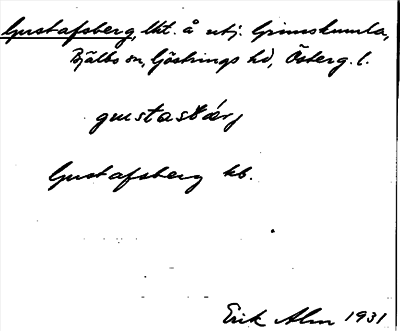 Gustafsberg, lht. å utj. Grimskumla,
Bjälbo sn, Göstrings hd, Österg. l.
gustasbärj
Gustafsberg kb.
Erik Alm 1931